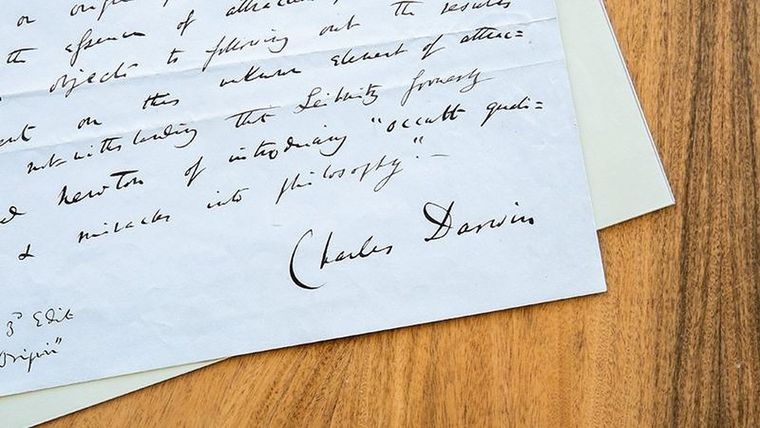 or origin
the essence of attraction
objects to following out the results
on this unknown element of attrac=
notwithstanding that Leibnitz formerly
Newton of introducing "occult quali=
& miracles into philosophy."—
Charles Darwin
3ᵈ Edit
Origin"